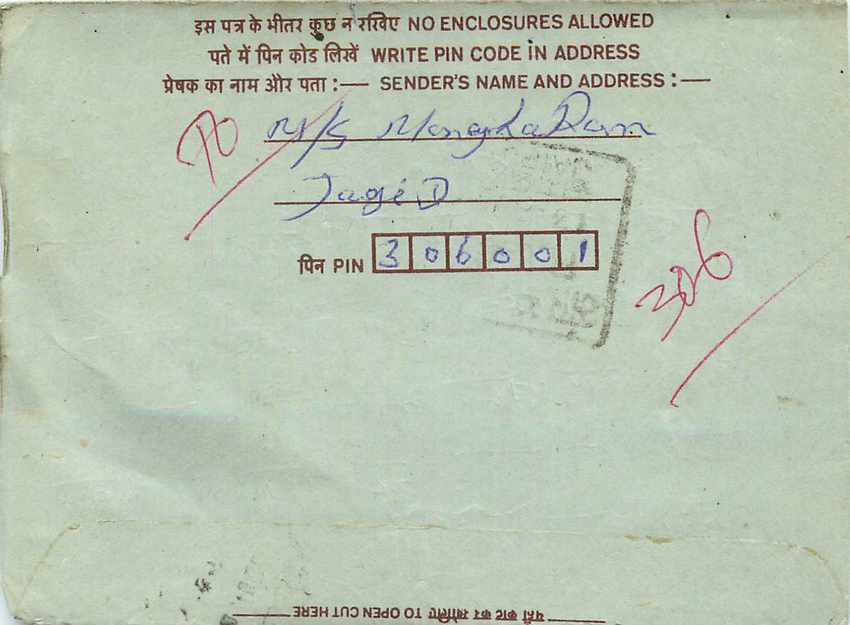 इस पत्र के भीतर कुछ न रखिए NO ENCLOSURES ALLOWED
पते में पिन कोड लिखें WRITE PIN CODE IN ADDRESS
प्रेषक का नाम और पता :— SENDER'S NAME AND ADDRESS :—
To M/S Mangla Ram
पिन PIN 306001
306
यहाँ काट कर खोलिए TO OPEN CUT HERE